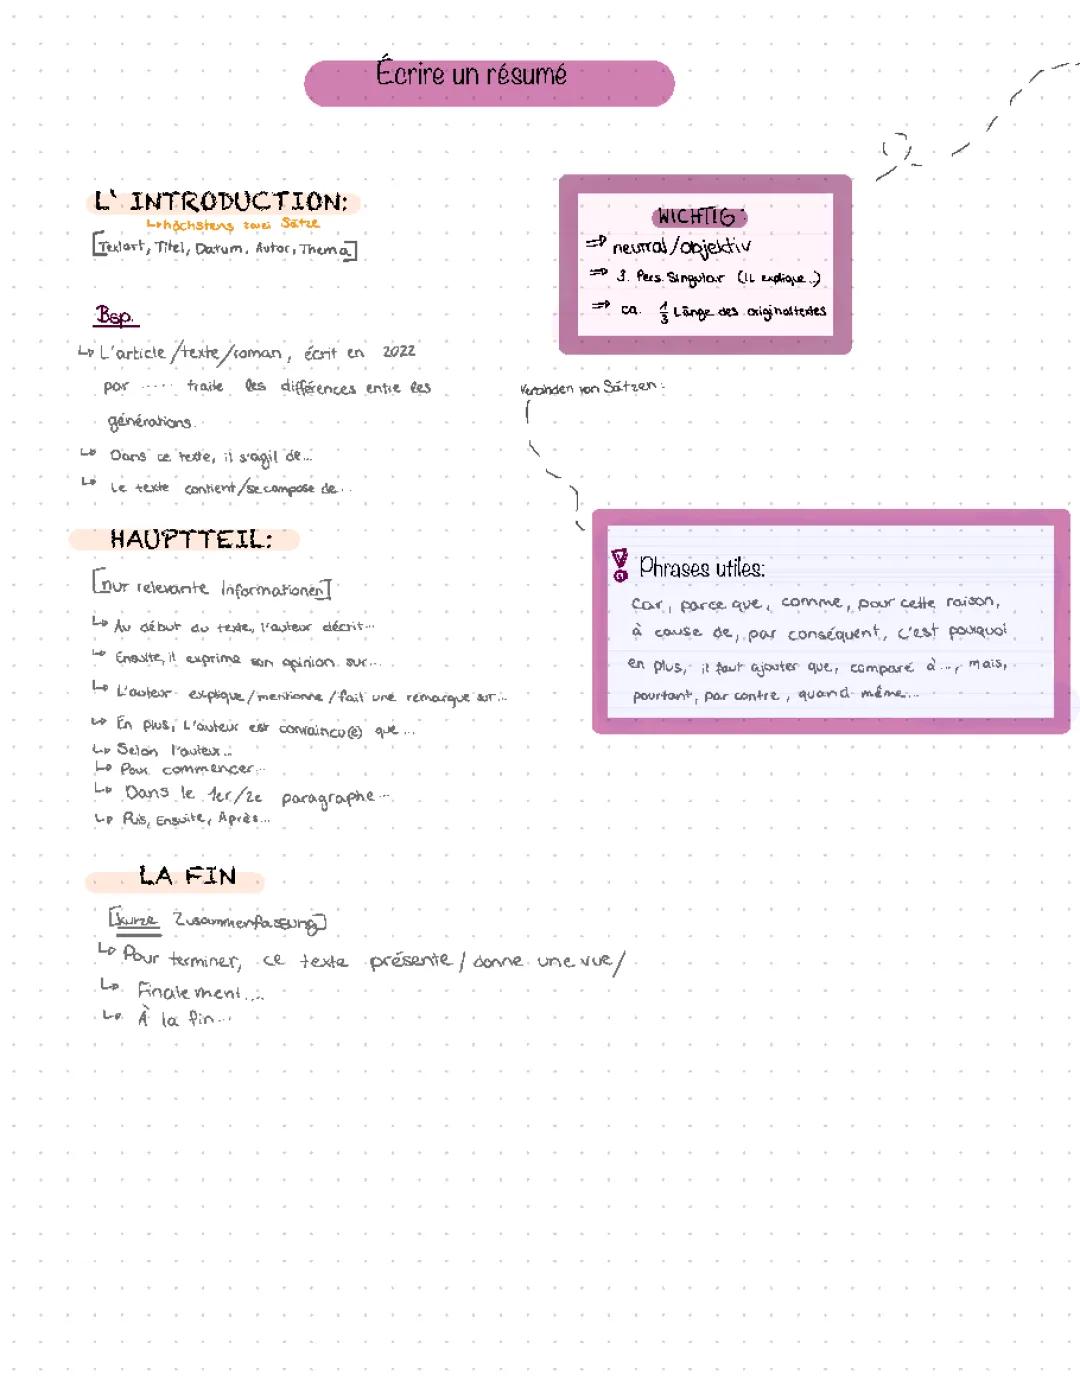 Écrire un résumé
L' INTRODUCTION:
↳höchstens zwei Sätze
[Textart, Titel, Datum, Autor, Thema]
Bsp.
↳ L'article/texte/roman, écrit en 2022
par ..... traite les différences entre les
générations.
↳ Dans ce texte, il s'agit de...
↳ Le texte contient/se compose de...
WICHTIG:
⇒ neutral/objektiv
⇒ 3. Pers. Singular (Il explique..)
⇒ ca. 1/3 Länge des originaltextes
Verbinden von Sätzen:
HAUPTTEIL:
[nur relevante Informationen]
↳ Au début du texte, l'auteur décrit...
↳ Ensuite, il exprime son opinion sur...
↳ L'auteur explique/mentionne/fait une remarque sur...
↳ En plus, L'auteur est convaincu(e) que...
↳ Selon l'auteur...
↳ Pour commencer...
↳ Dans le 1er/2e paragraphe...
↳ Puis, Ensuite, Après...
Phrases utiles:
Car, parce que, comme, pour cette raison,
à cause de, par conséquent, c'est pourquoi
en plus, il faut ajouter que, comparé à..., mais,
pourtant, par contre, quand même...
LA FIN
[kurze Zusammenfassung]
↳ Pour terminer, ce texte présente/donne une vue/
↳ Finalement....
↳ À la fin...